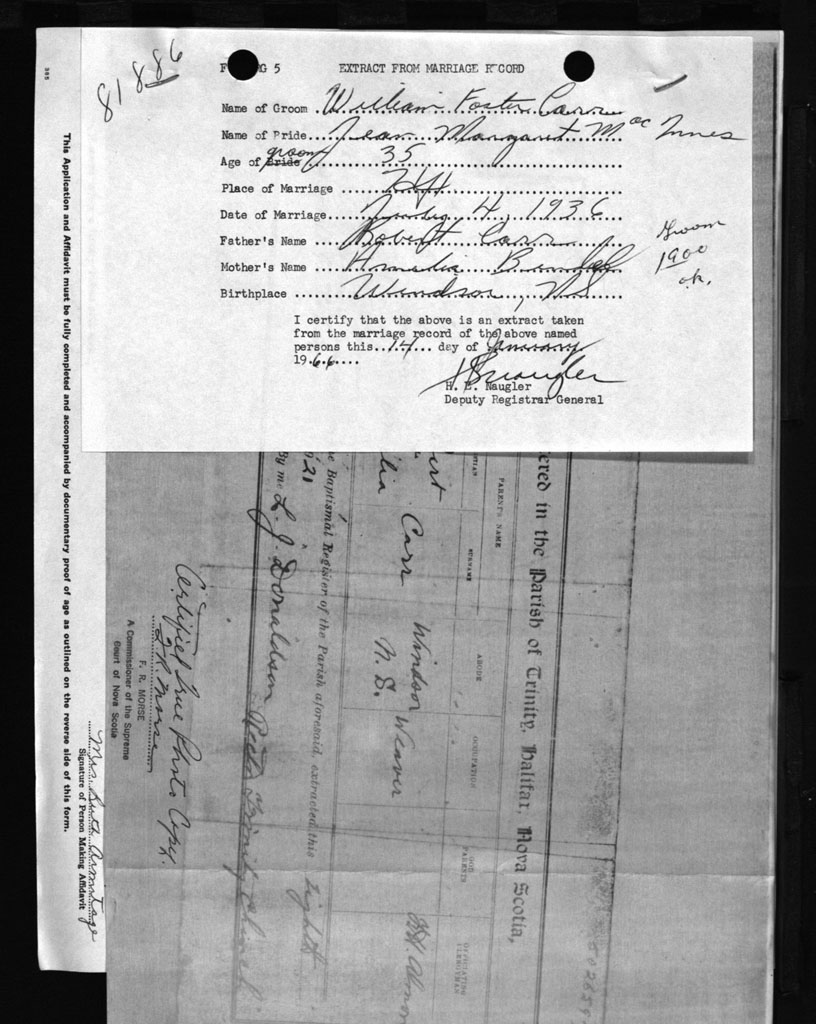 81886
385
EXTRACT FROM MARRIAGE RECORD
Name of Groom William Foster Carr
Name of Bride Jean Margaret MacInnes
Age of Bride groom 35
Place of Marriage Hfx
Date of Marriage 4, 1936
Father's Name Robert Carr
Mother's Name
Birthplace Windsor, NS
Groom
1900
ok.
I certify that the above is an extract taken
from the marriage record of the above named
persons this 14 day of January
1966
H. E. Naugler
Deputy Registrar General
This Application and Affidavit must be fully completed and accompanied by documentary proof of age as outlined on the reverse side of this form.
Signature of Person Making Affidavit
ered in the Parish of Trinity, Halifax, Nova Scotia,
PARENT'S NAME
SURNAME
ABODE
OCCUPATION
GOD PARENTS
OFFICIATING CLERGYMAN
Carr Windsor Weaver
N. S.
e Baptismal Register of the Parish aforesaid, extracted this Eighth
By me L. J. Donaldson Rector Trinity Church
Certified True Photo Copy.
F. R. Morse
F. R. MORSE
A Commissioner of the Supreme
Court of Nova Scotia